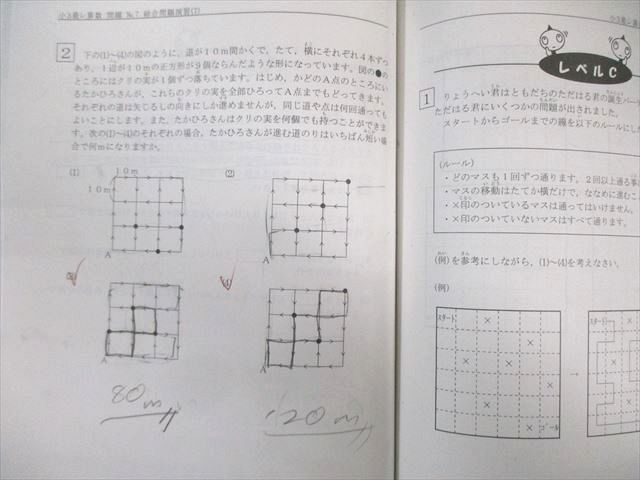 小3最レ算数 問題 №7 総合問題演習(7)
2
下の(1)~(4)の図のように、道が10m間かくで、たて、横にそれぞれ4本ずつ
あり、1辺が10mの正方形が9個ならんだような形になっています。図の●の
ところにはクリの実が1個ずつ落ちています。はじめ、かどのA点のところにい
るたかひろさんが、これらのクリの実を全部ひろってA点までもどってきます。
それぞれの道は矢じるしの向きにしか進めませんが、同じ道や点は何回通っても
よいことにします。また、たかひろさんはクリの実を何個でも持つことができま
す。次の(1)~(4)のそれぞれの場合、たかひろさんが進む道のりはいちばん短い場
合で何mになりますか。
(1)
10m
10m
A
(2)
A
(3)
A
80m
(4)
A
120m
小3最レ算
レベルC
1
りょうへい君はともだちのただはる君の誕生パー
ただはる君にいくつかの問題が出されました。
スタートからゴールまでの線を以下のルールにし
(ルール)
・どのマスも1回ずつ通ります。2回以上通る事
・マスの移動はたてか横だけで、ななめに進むこ
・×印のついているマスは通ってはいけません。
・×印のついていないマスはすべて通ります。
(例)を参考にしながら、(1)~(4)を考えなさい。
(例)
スタート
×
×
×
×
×
×
ゴール
→
スタート